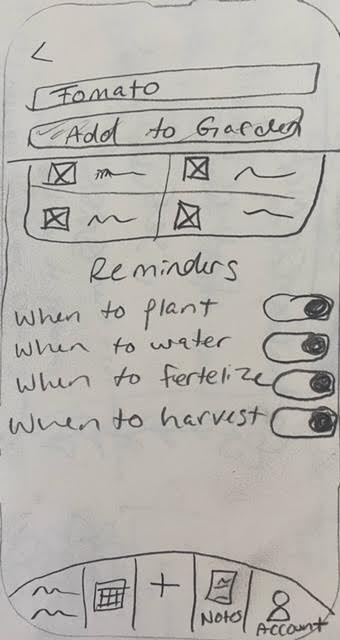 Tomato
Add to Garden
Reminders
When to plant
When to water
When to fertelize
When to harvest
Notes
Account